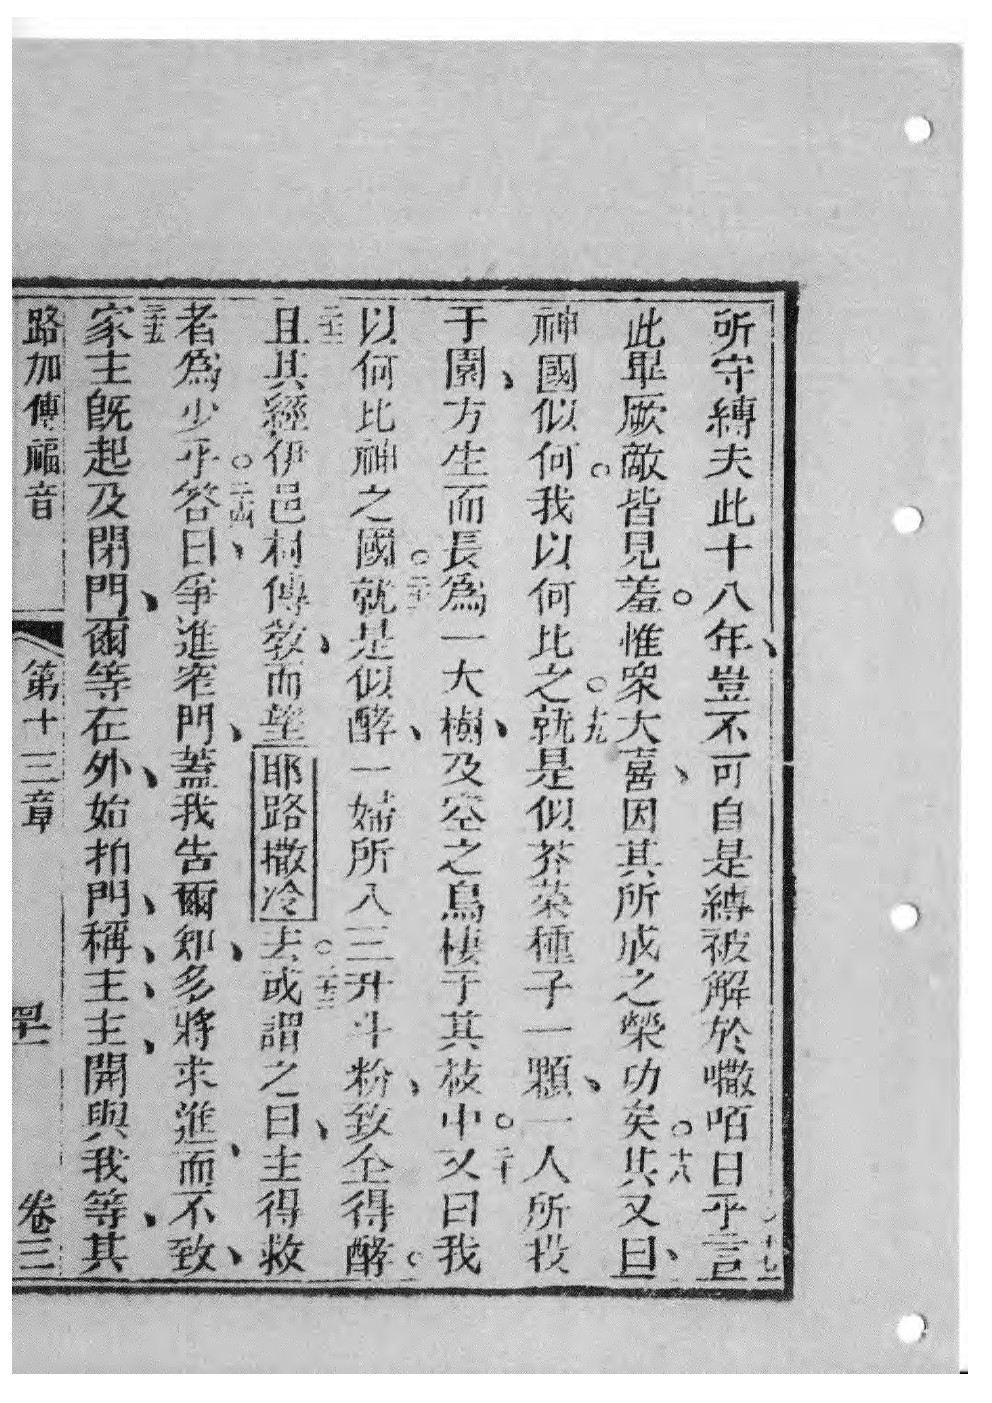 所守縛夫此十八年、豈不可自是縛被解於嚽咟日乎十七言
此畢厥敵皆見羞。惟衆大喜、因其所成之榮功矣。十八其又曰、
神國似何。我以何比之。十九就是似芥菜種子一顆、一人所投
于園、方生而長爲一大樹、及空之鳥棲于其枝中。二十又曰我
以何比神之國。二十一就是似酵、一婦所入三升斗粉、致仝得酵。
二十二且其經伊邑村傳教、而望耶路撒冷去。二十三或謂之曰、主得救
者爲少乎。二十四答曰、爭進窄門、蓋我告爾知、多將求進、而不致、
二十五家主旣起及閉門、爾等在外、始拍門、稱、主、主、開與我等、其
路加傳福音 第十三章 卷三